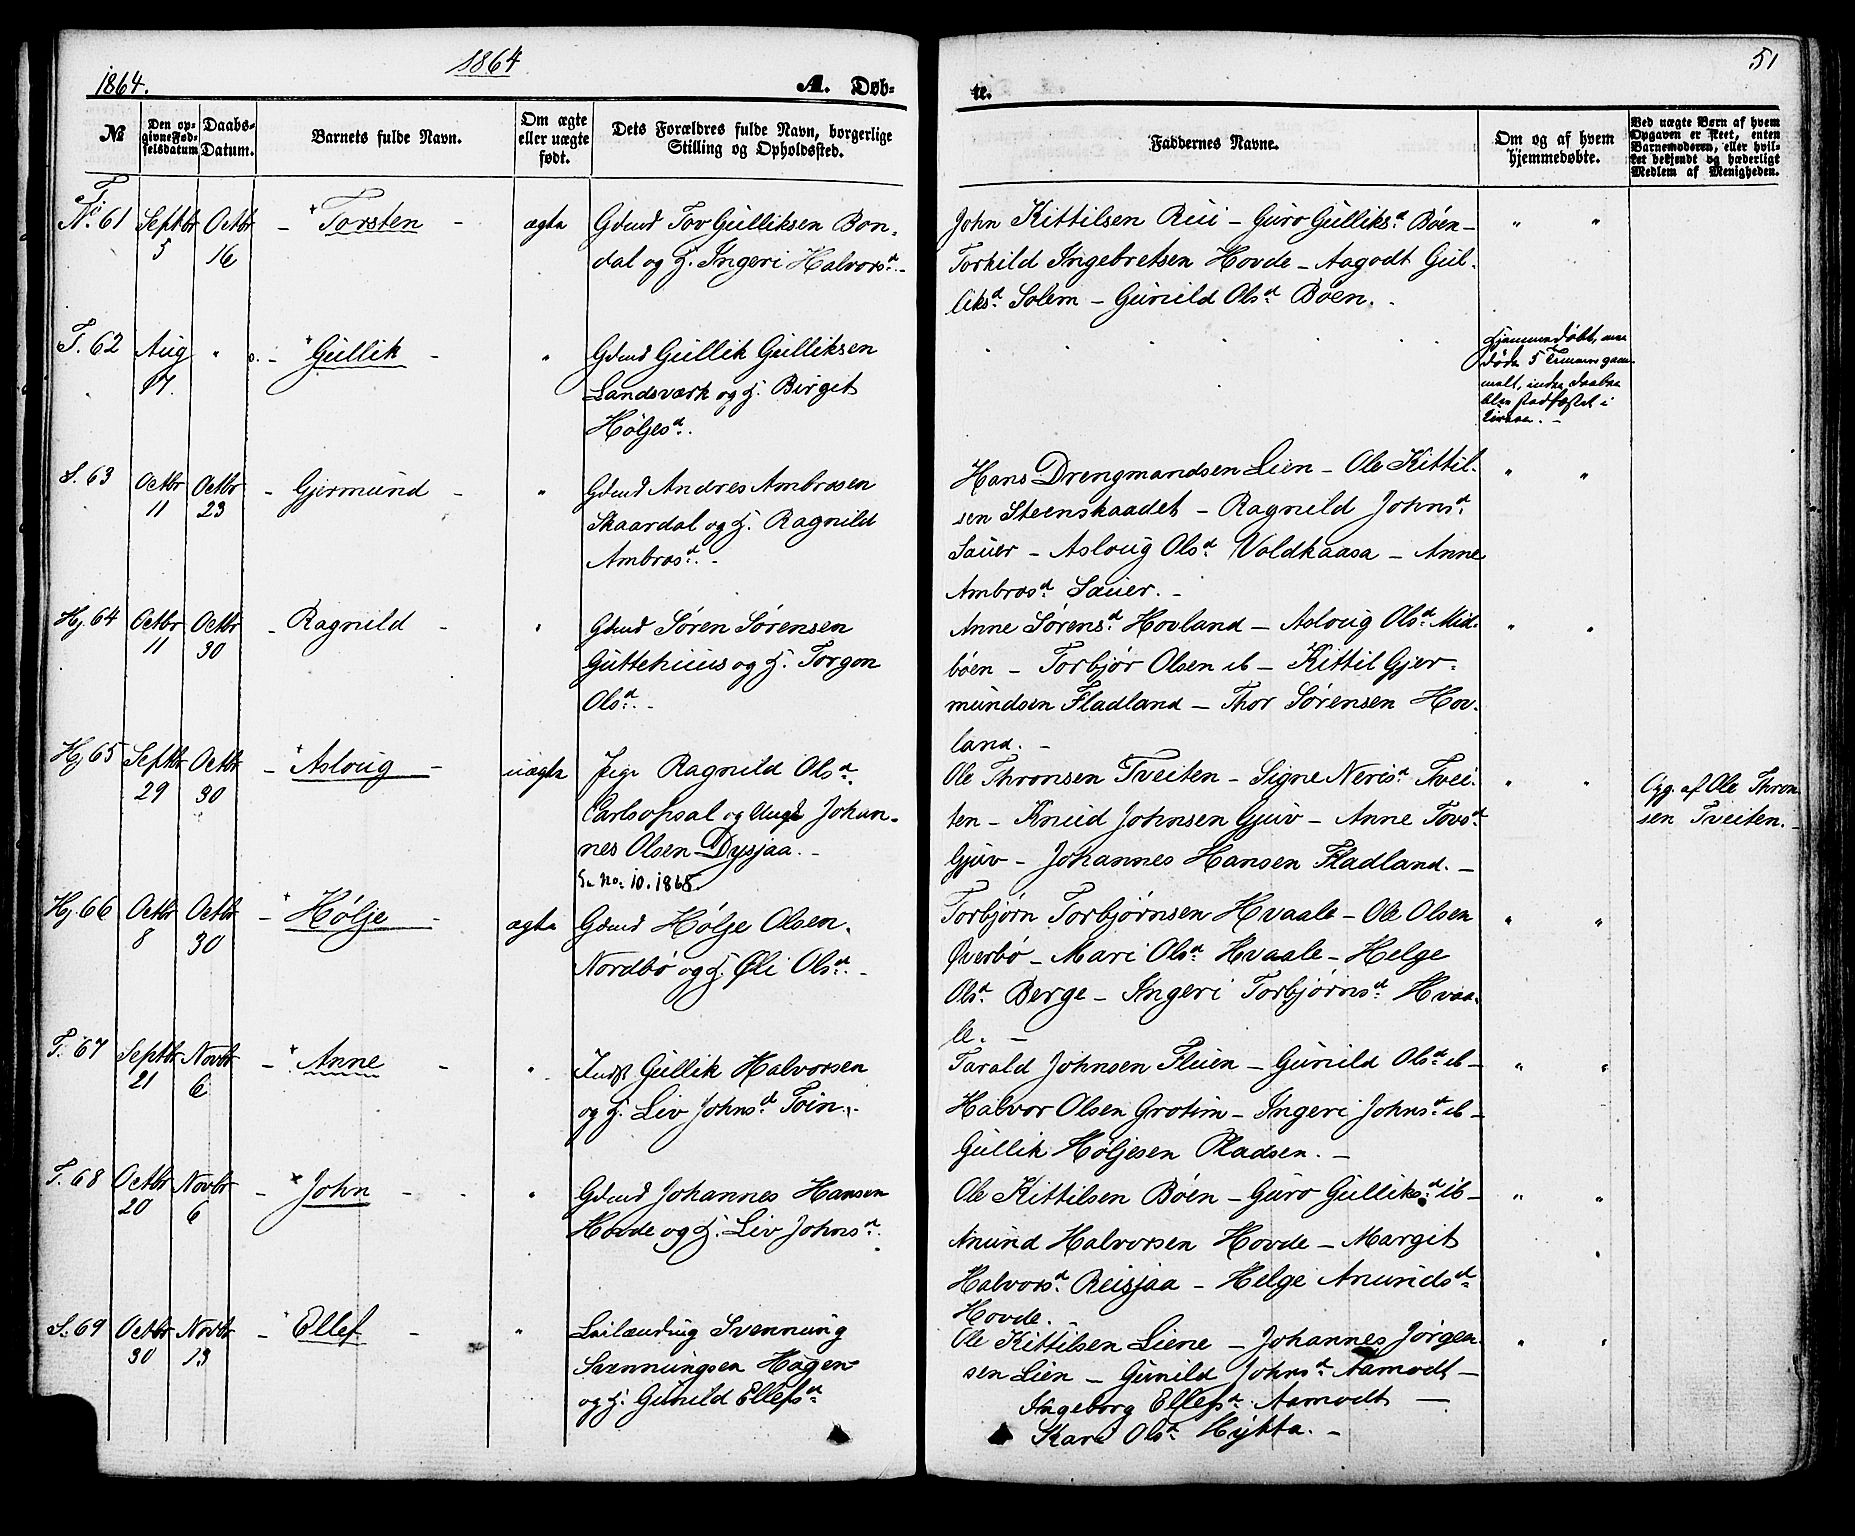 1864.
1864
A. Døb-
te.
51
№
Den op-
givne Fød-
selsdatum
Daabs-
Datum.
Barnets fulde Navn.
Om ægte
eller uægte
født.
Dets Forældres fulde Navn, borgerlige
Stilling og Opholdssted.
Faddernes Navne.
Om og af hvem
hjemmedøbte.
Ved uægte Børn af hvem
Opgaven er skeet, enten
Barnemoderen, eller hvil-
ket bekjendt og hæderligt
Medlem af Menigheden.
T.
No. 61 Septbr 5 Octbr 16 - Torsten - ægte
Gdmd Tov Gulliksen Bon-
dal og H. Ingeri Halvorsd. -
John Kittilsen Rui - Guro Gulliksd. Bøen -
Torkild Ingebretsen Hovde - Aagodt Gul-
liksd. Solem - Gunild Olsd. Bøen. -
" "
T. 62 Aug 17. " - Gullik - "
Gdmd Gullik Gulliksen
Landsværk og H. Birget
Høljesd. -
Hjemmedøbt, men
døde 5 Timer gam-
melt, inden Daaben
blev stadfæstet i
Kirken. -
S. 63 Octbr 11 Octbr 23 - Gjermund - "
Gdmd Andres Ambrosen
Skaardal og H. Ragnild
Ambrosd. -
Hans Drengmandsen Lien - Ole Kittil-
sen Steenskaadet - Ragnild Johnsd.
Sauer - Asloug Olsd. Voldkaasa - Anne
Ambrosd. Sauer. -
" "
Hj. 64 Octbr 11 Octbr 30 - Ragnild - "
Gdmd Søren Sørensen
Guttehuus og H. Torgon
Olsd. -
Anne Sørensd. Hovland - Asloug Olsd. Mid-
bøen - Torbjør Olsen ib - Kittil Gjer-
mundsen Fladland - Thor Sørensen Hov-
land. -
" "
Hj. 65 Septbr 29 Octbr 30 - Asloug - uægte
Pige Ragnild Olsd.
Carlsopsal og Ungk Johan-
nes Olsen Dysjaa. -
Se No: 10. 1868.
Ole Thronsen Tveiten - Signe Nerisd. Tvei-
ten - Knud Johnsen Gjuv - Anne Tovsd.
Gjuv - Johannes Hansen Fladland. -
" "
Opg. af Ole Thron-
sen Tveiten. -
Hj. 66 Octbr 8 Octbr 30 - Hølje - ægte
Gdmd Hølje Olsen
Nordbø og H. Øli Olsd. -
Torbjørn Torbjørnsen Hvaale - Ole Olsen
Øverbø - Mari Olsd. Hvaale - Helge
Olsd. Berge - Ingeri Torbjørnsd. Hvaa-
le. -
" "
T. 67 Septbr 21 Novbr 6 - Anne - "
Indst Gullik Halvorsen
og H. Liv Johnsd. Toin. -
Tarald Johnsen Fluen - Gunild Olsd. ib -
Halvor Olsen Grotim - Ingeri Johnsd. ib -
Gullik Høljesen Pladsen. -
" "
T. 68 Octbr 20 Novbr 6 - John - "
Gdmd Johannes Hansen
Hovde og H. Liv Johnsd.
Ole Kittilsen Bøen - Guro Gulliksd. ib -
Anund Halvorsen Hovde - Margit
Halvorsd. Reisjaa - Helge Anundsd.
Hovde. -
" "
S. 69 Octbr 30 Novbr 13 - Ellef - "
Leilænding Svennung
Svennungsen Hagen
og H. Gunild Ellefsd.
Ole Kittilsen Liene - Johannes Jörgen-
sen Lien - Gunild Johnsd. Aamodt -
Ingeborg Ellefsd. Aamodt -
Kari Olsd. Hytta. -
" "